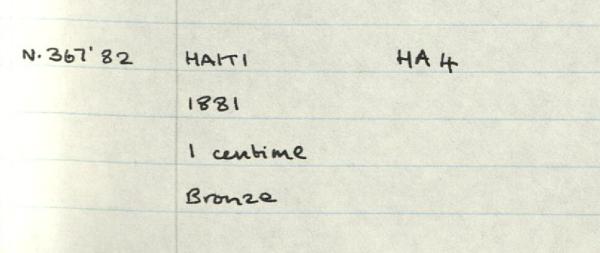 N.367'82 HAITI HA 4
1881
1 centime
Bronze